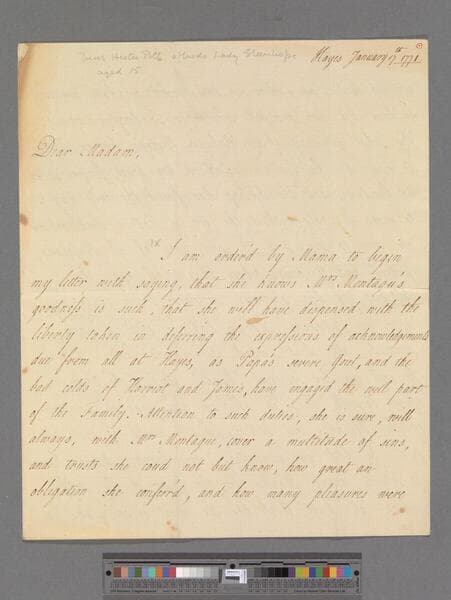 from Hester Pitt afterwds Lady Stanhope
aged 15
Hayes January 17th 1771
Dear Madam,
I am order'd by Mama to begin
my letter with saying, that she knows Mrs Montagu's
goodness is such, that she will have dispensed with the
liberty taken in deferring the expressions of acknowledgements
due from all at Hayes, as Papa's severe Gout, and the
bad colds of Harriot and James, have engaged the well part
of the Family. Attention to such duties, she is sure, will
always, with Mrs Montague, cover a multitude of sins,
and trusts she coud not but know, how great an
obligation she conferr'd, and how many pleasures were